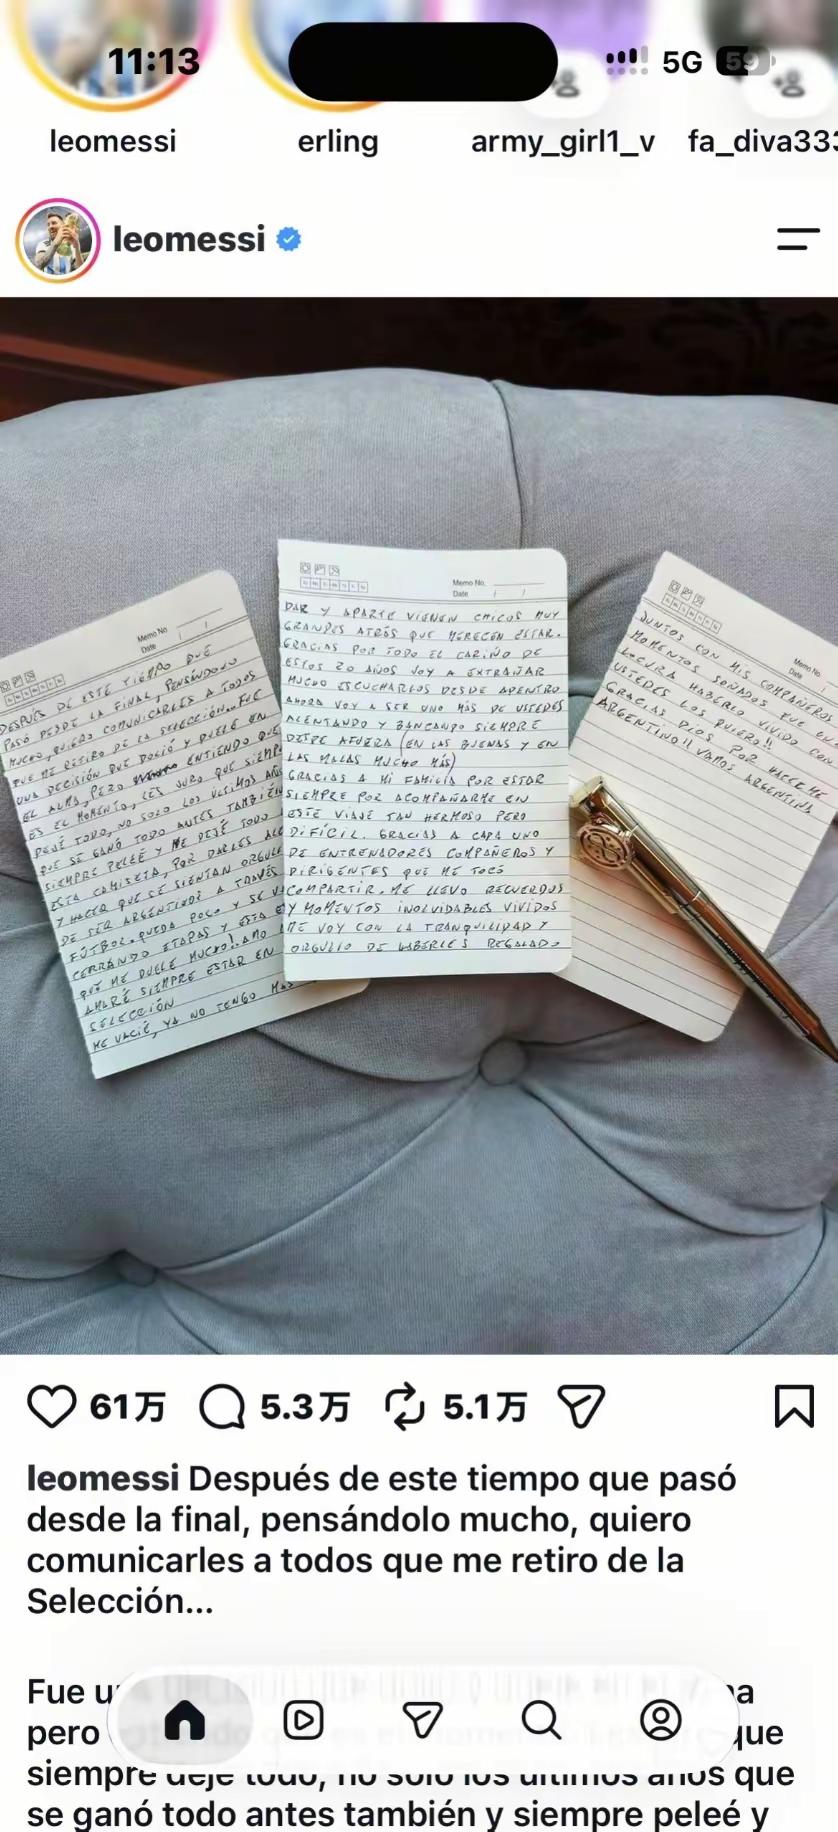 11:13
5G
59
leomessi
erling
army_girl1_v
fa_diva333
leomessi
Memo No.
Date
DESPUÉS DE ESTE TIEMPO QUE
PASÓ DESDE LA FINAL, PENSÁNDOLO
MUCHO, QUIERO COMUNICARLES A TODOS
QUE ME RETIRO DE LA SELECCIÓN.. FUE
UNA DECISIÓN QUE DOLIÓ Y DUELE EN
EL ALMA, PERO ENTIENDO QUE
ES EL MOMENTO, LES JURO QUE SIEMP
DEJÉ TODO, NO SOLO LOS ÚLTIMOS AÑOS
QUE SE GANÓ TODO ANTES TAMBIÉN
SIEMPRE PELEÉ Y ME DEJÉ TODO
ESTA CAMISETA, POR DARLES ALE
Y HACER QUE SE SIENTAN ORGULL
DE SER ARGENTINOS A TRAVÉS
FÚTBOL. QUEDA POCO Y SE V
CERRANDO ETAPAS Y ESTA E
QUE ME DUELE MUCHO!! AMO
AMARÉ SIEMPRE ESTAR EN
SELECCIÓN
ME VACIÉ, YA NO TENGO MAS
Memo No.
Date
DAR Y APARTE VIENEN CHICOS MUY
GRANDES ATRÁS QUE MERECEN ESTAR.
GRACIAS POR TODO EL CARIÑO DE
ESTOS 20 AÑOS VOY A EXTRAÑAR
MUCHO ESCUCHARLOS DESDE ADENTRO
AHORA VOY A SER UNO MÁS DE USTEDES
ALENTANDO Y BANCANDO SIEMPRE
DESDE AFUERA (EN LAS BUENAS Y EN
LAS MALAS MUCHO MÁS)
GRACIAS A MI FAMILIA POR ESTAR
SIEMPRE POR ACOMPAÑARME EN
ESTE VIAJE TAN HERMOSO PERO
DIFÍCIL. GRACIAS A CADA UNO
DE ENTRENADORES COMPAÑEROS Y
DIRIGENTES QUE ME TOCÓ
COMPARTIR. ME LLEVO RECUERDOS
Y MOMENTOS INOLVIDABLES VIVIDOS
ME VOY CON LA TRANQUILIDAD Y
ORGULLO DE HABERLES REGALADO
Memo No.
Date
JUNTOS CON MIS COMPAÑEROS
MOMENTOS SOÑADOS FUE UNA
LOCURA HABERLO VIVIDO CON
USTEDES LOS QUIERO!!
GRACIAS DIOS POR HACERME
ARGENTINO!! VAMOS ARGENTINA
61万
5.3万
5.1万
leomessi Después de este tiempo que pasó
desde la final, pensándolo mucho, quiero
comunicarles a todos que me retiro de la
Selección...
Fue
pero que
siempre dejé todo, no solo los últimos años que
se ganó todo antes también y siempre peleé y